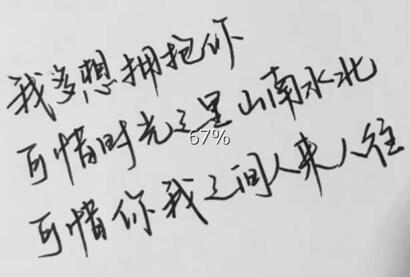 我多想拥抱你
可惜时光之里山南水北
可惜你我之间人来人往
67%